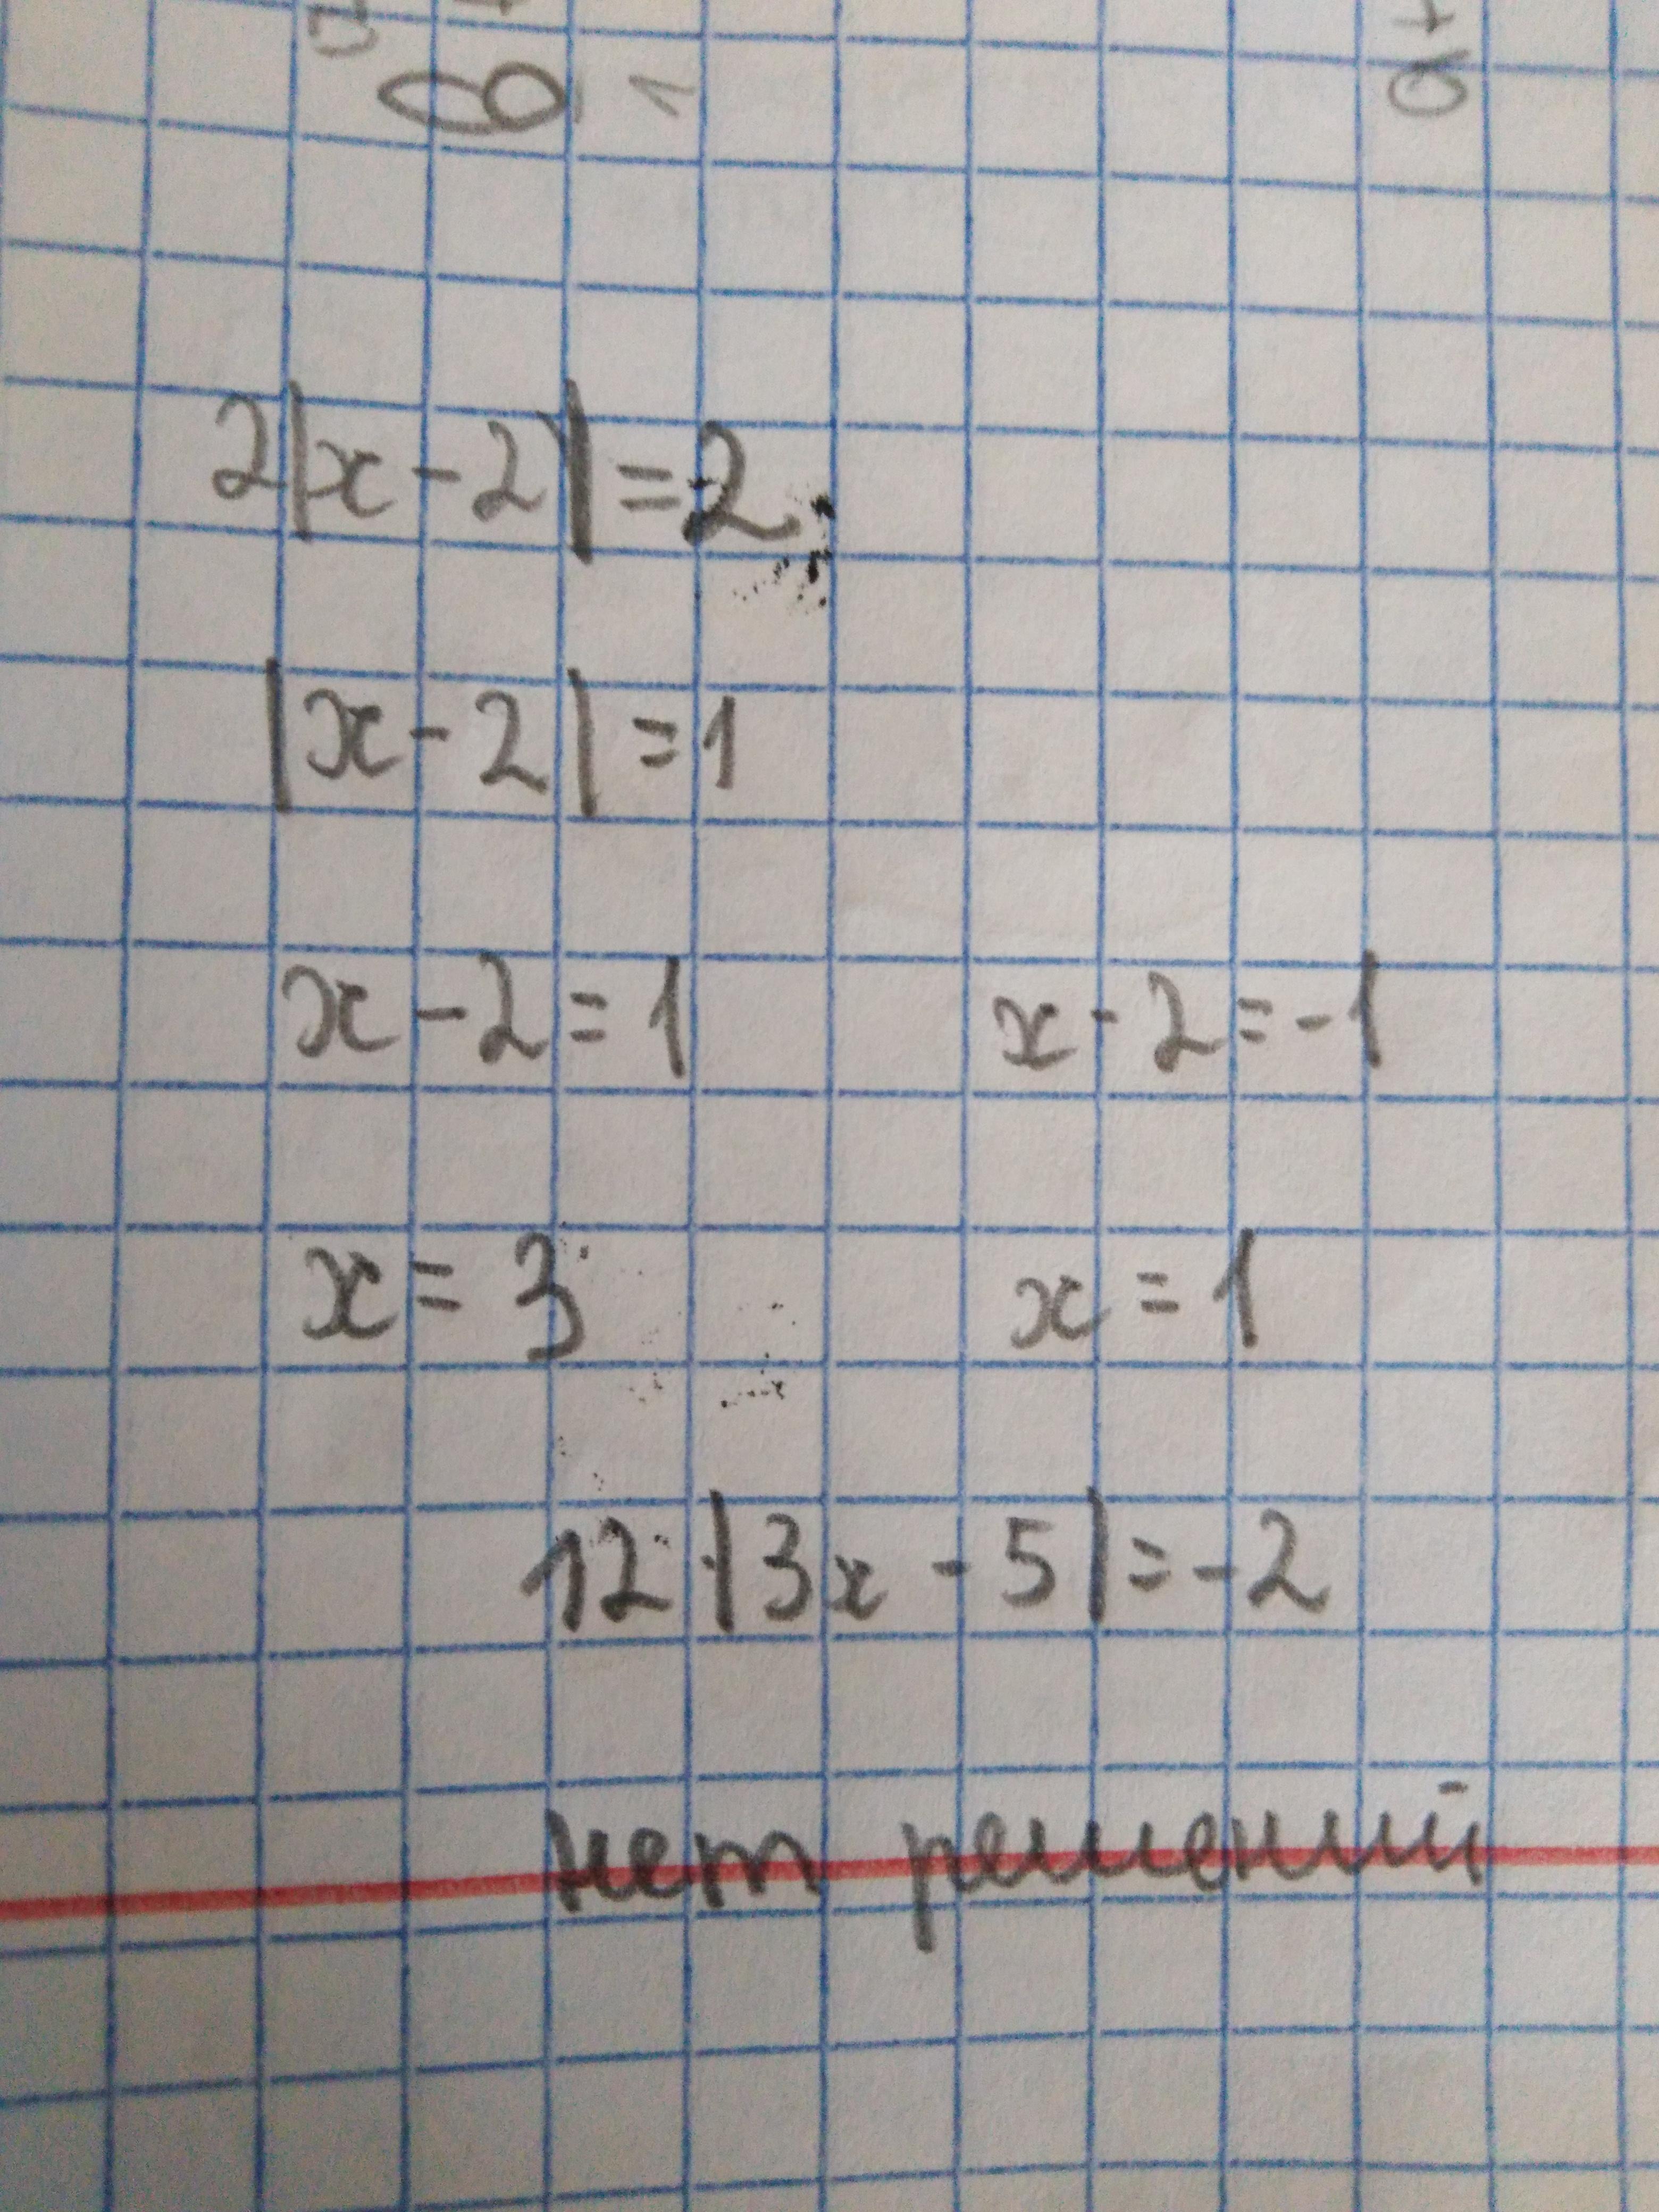 2|x-2|=2
|x-2|=1
x-2=1 x-2=-1
x=3 x=1
12·|3x-5|=-2
нет решений